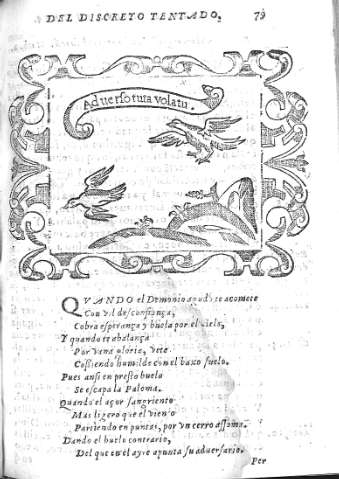 DEL DISCRETO TENTADO, 79
Aduerso tuta volatu.
QVANDO el Demonio te acomete
Con vil desconfiança,
Cobra esperança y buela por el cielo,
Y quando te abalança
Por vana gloria, vete
Cossiendo humilde con el baxo suelo.
Pues ansi en presto buelo
Se escapa la Paloma.
Quando el açor sangriento
Mas ligero que el viento
Partiendo en puntas, por vn cerro assoma.
Dando el buelo contrario,
Del que en el ayre apunta su aduersario.
Per